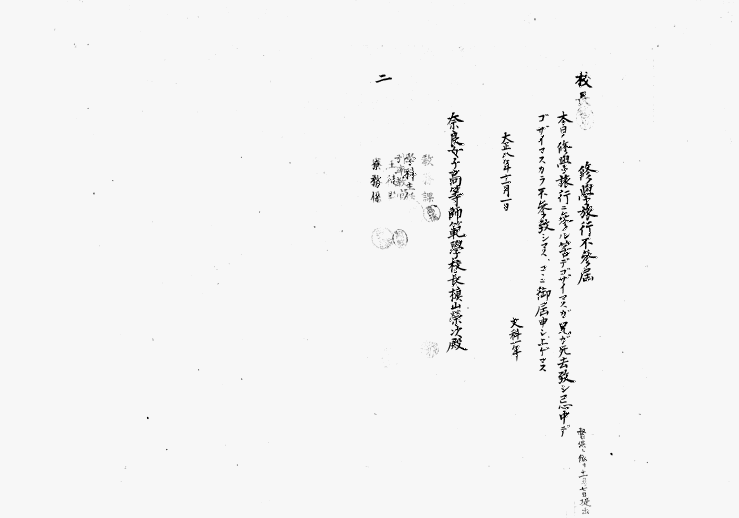 校長
修學旅行不參届
本日ノ修學旅行ニ參ル筈デゴザイマスガ兄ガ死去致シ忌中デ
ゴザイマスカラ不參致シマス、ココニ御届申シ上ゲマス
大正八年十二月一日
文科一年
奈良女子高等師範學校長槇山榮次殿
教 課
學科主任
生徒
庶務係
二